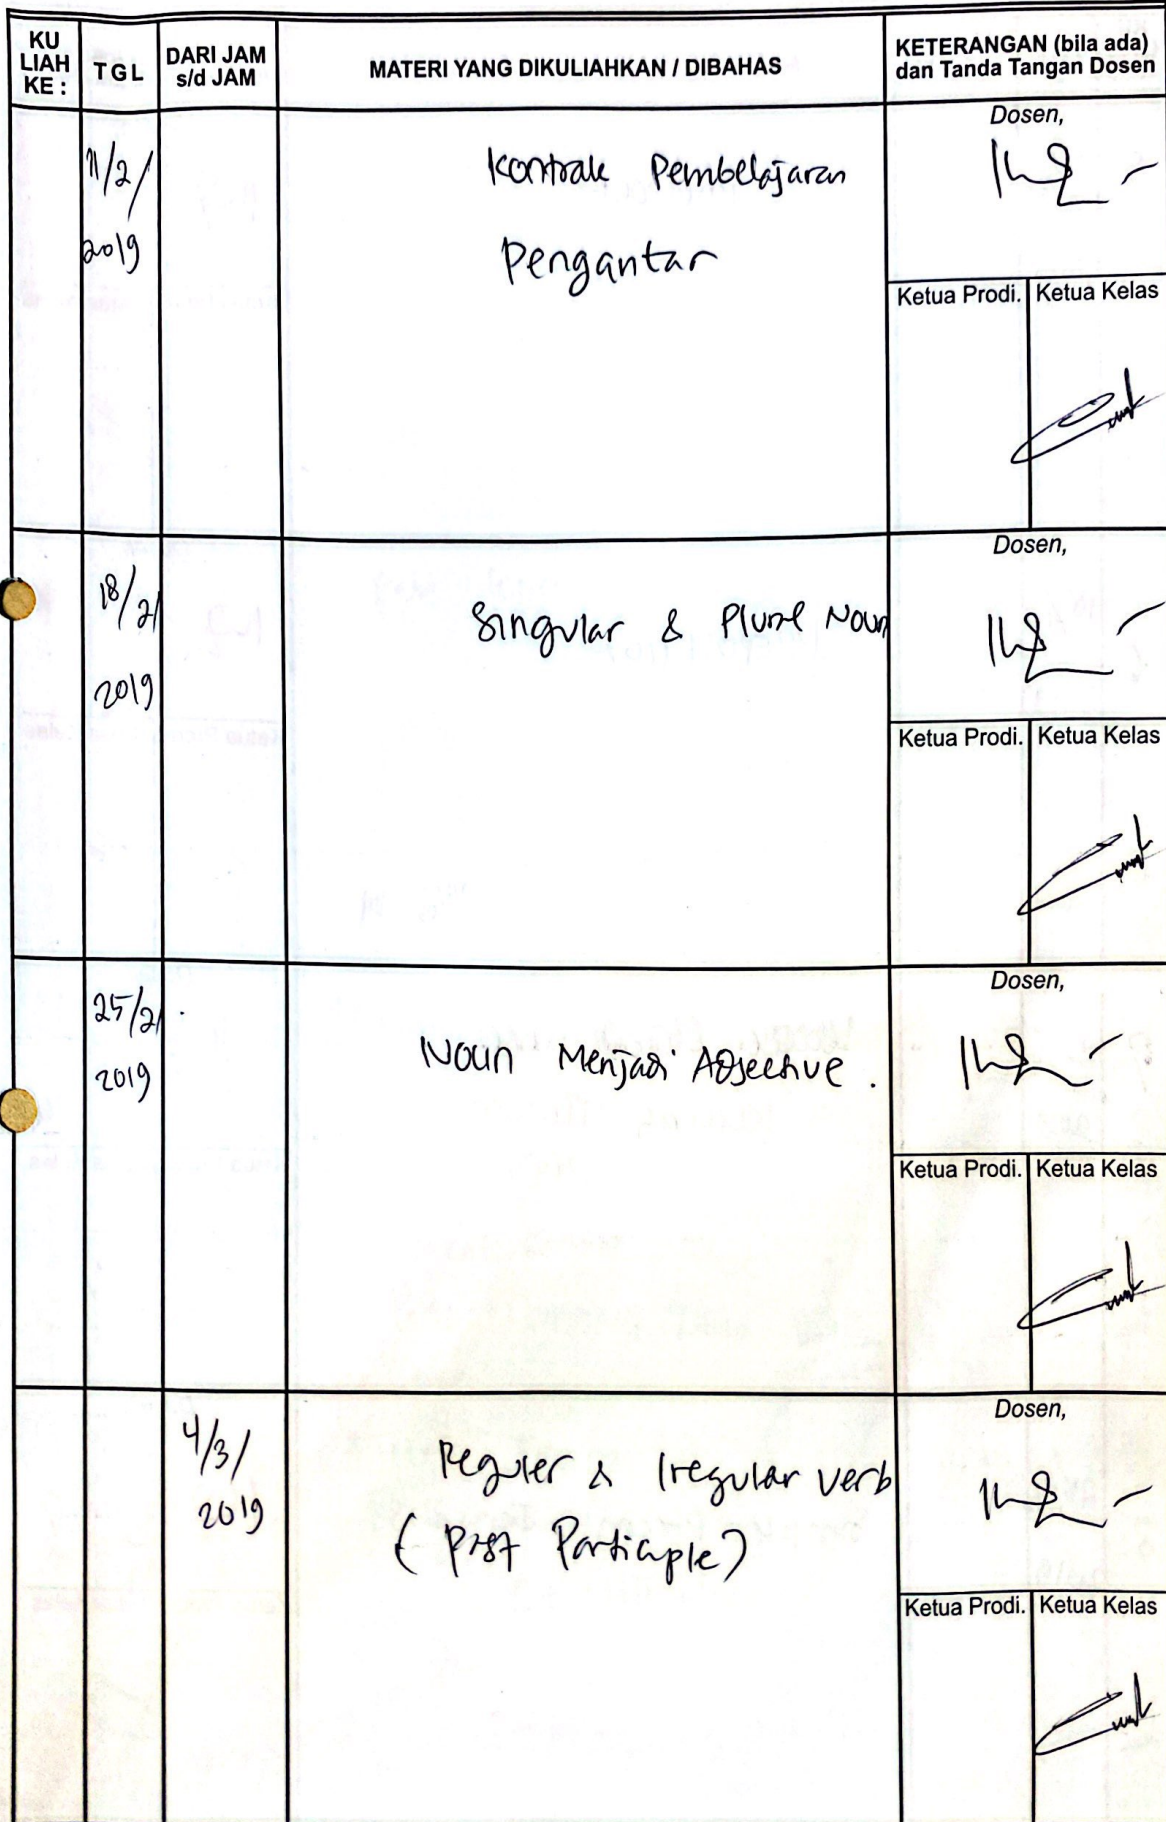 KU LIAH KE : TGL DARI JAM s/d JAM MATERI YANG DIKULIAHKAN / DIBAHAS KETERANGAN (bila ada) dan Tanda Tangan Dosen
Dosen,
11/2/ Kontrak Pembelajaran
2019 Pengantar
Ketua Prodi. Ketua Kelas
Dosen,
18/2/ Singular & Plural Noun
2019
Ketua Prodi. Ketua Kelas
Dosen,
25/2/
2019 Noun Menjadi Adjective .
Ketua Prodi. Ketua Kelas
Dosen,
4/3/ Reguler & Iregular verb
2019 ( Past Participle )
Ketua Prodi. Ketua Kelas